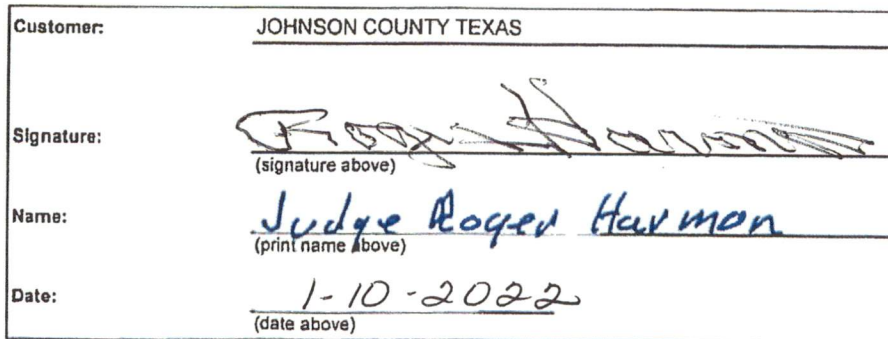 Customer: JOHNSON COUNTY TEXAS
Signature: Roger Harmon
(signature above)
Name: Judge Roger Harmon
(print name above)
Date: 1-10-2022
(date above)